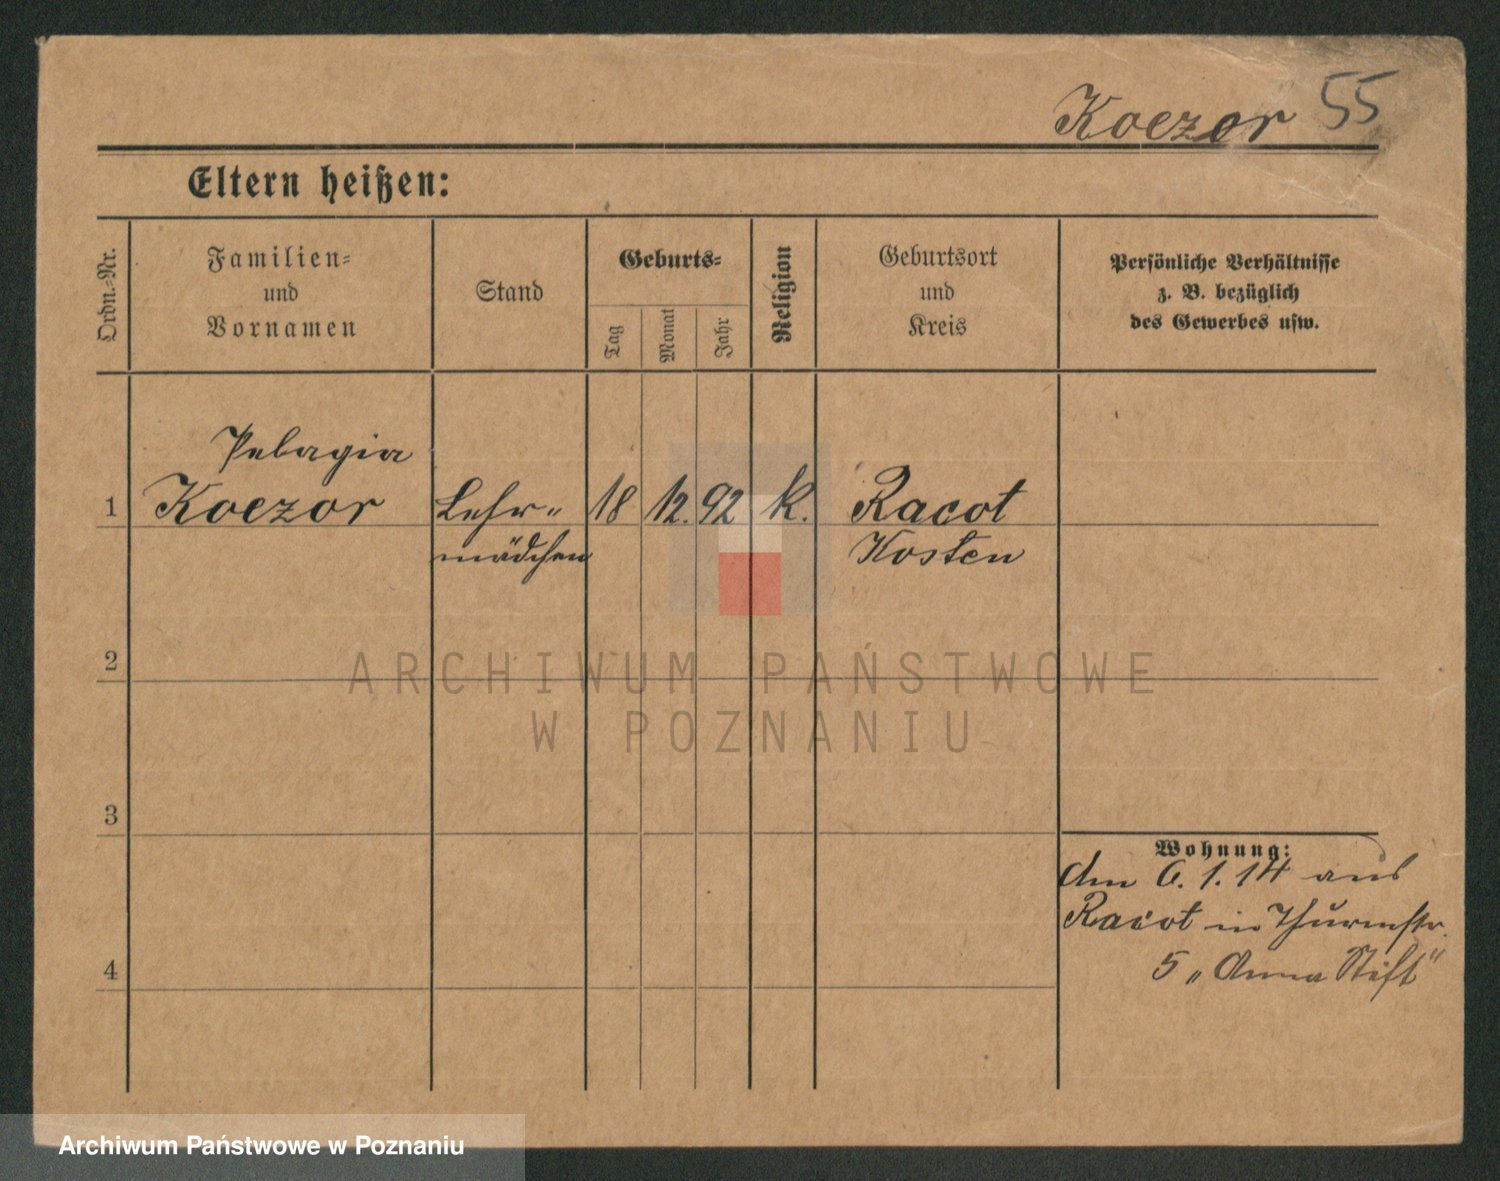 Koezor 55
Eltern heißen:
Ordn.-Nr.
Familien-
und
Vornamen
Stand
Geburts-
Tag
Monat
Jahr
Religion
Geburtsort
und
Kreis
Persönliche Verhältnisse
z. B. bezüglich
des Gewerbes usw.
Pelagia
1 Koezor Lehr- 18 12. 92 k. Racot
mädchen Kosten
2
ARCHIWUM PAŃSTWOWE
W POZNANIU
3
Wohnung:
Am 6.1.14 aus
Racot in Thurmstr.
4
5 „Anna Stift"
Archiwum Państwowe w Poznaniu